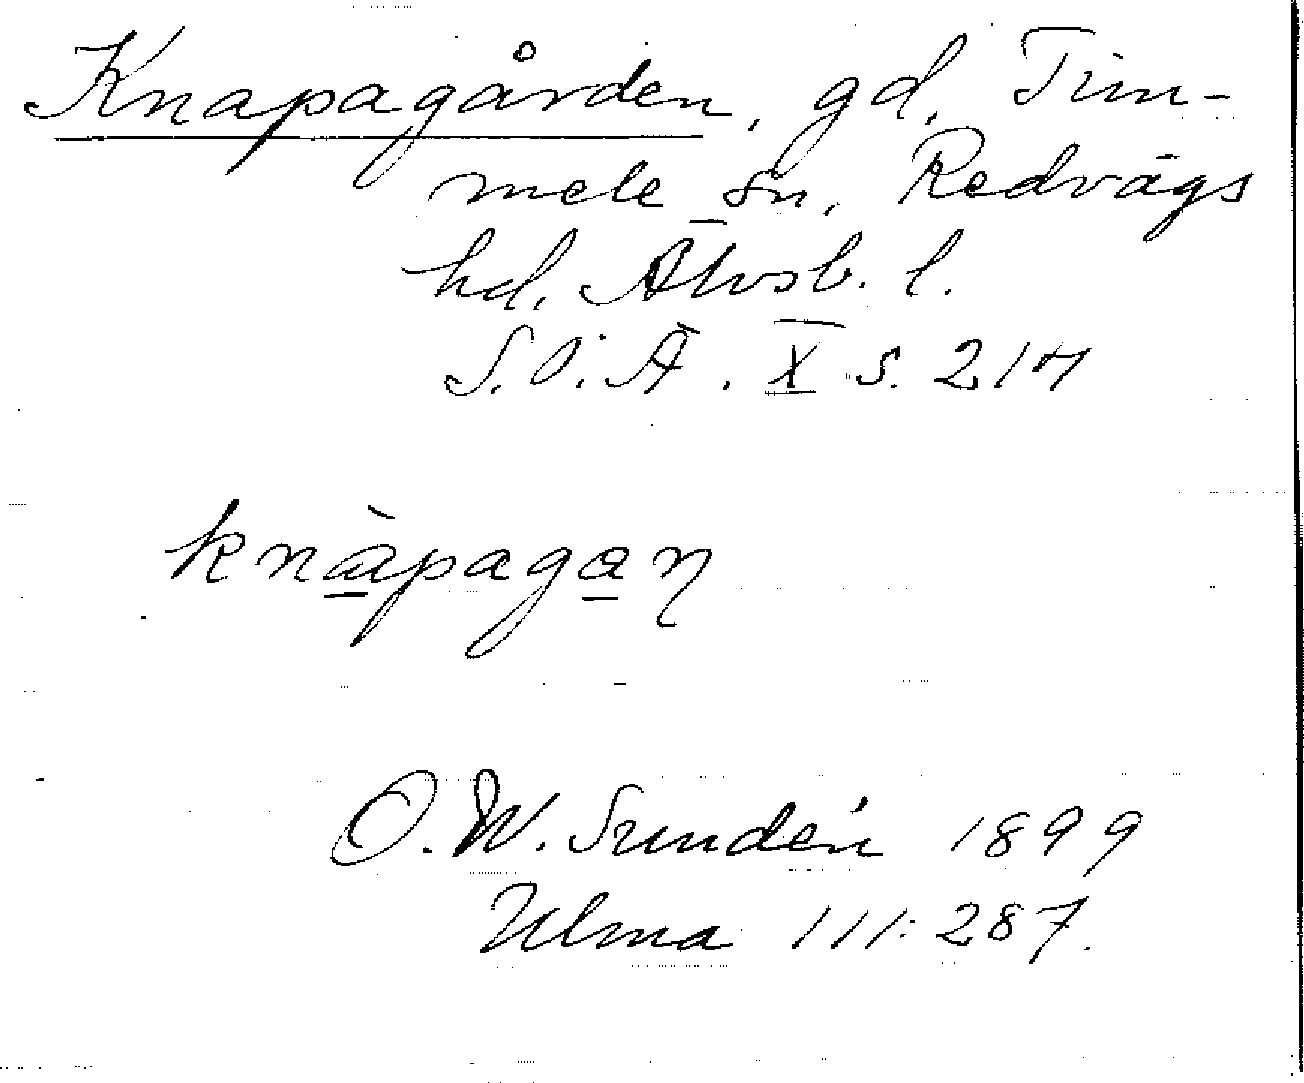 Knapagården, gd, Tim-
mele sn, Redvägs
hd, Älvsb. l.
S.O.Ä. X s. 217
knàpagaṇ
O.W. Sundén 1899
Ulma 111:287.